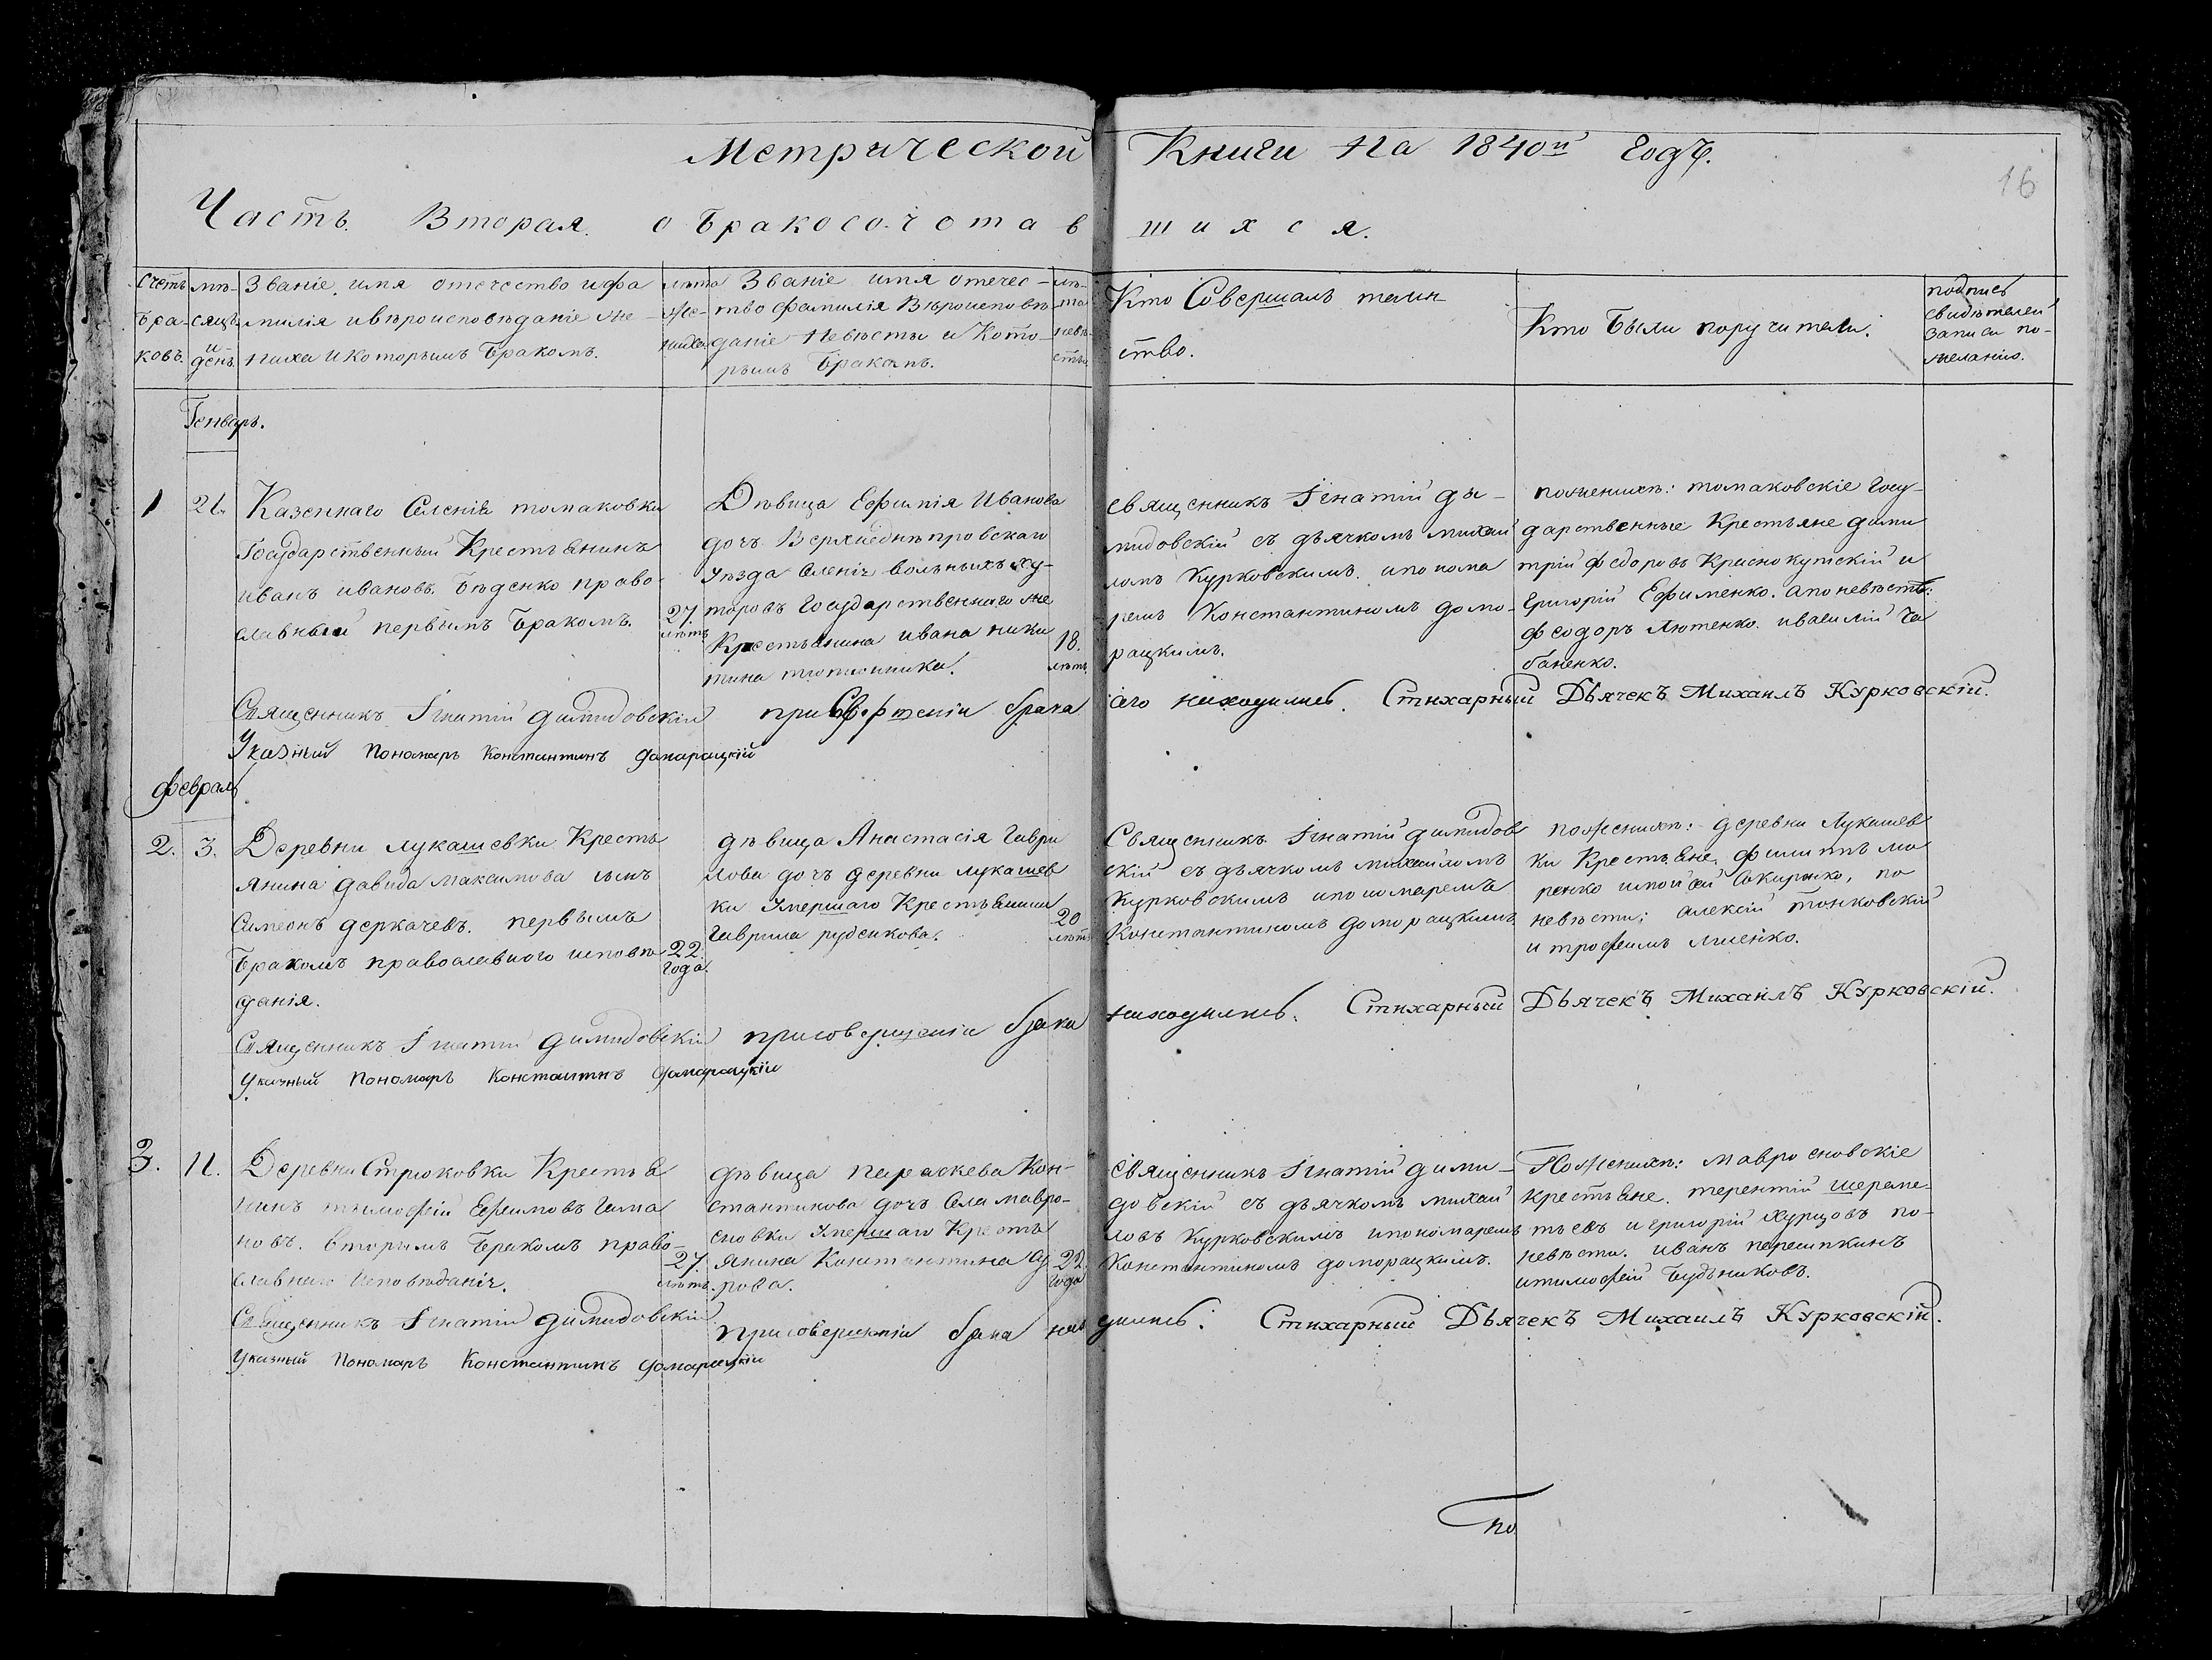 Метрической Книги На 1840й годъ.
16
Часть Вторая о бракосочетавшихся.
Счетъ браковъ.
мѣсяцъ и день.
Званіе, имя отечество ифа
милія ивѣроисповѣданіе же-
ниха икоторымъ бракомъ.
лѣта же-
ниха.
Званіе имя отечес-
тво фамилія Вѣроисповѣ
даніе Невѣсты и Кото-
рымъ бракомъ.
лѣ-
та
невѣ-
сты.
Кто Совершалъ таин-
ство.
Кто Были поручители.
подпись
свидѣтелей
записи по-
желанію.
Генварь.
1
21.
Казеннаго Селенія томаковки
Государственный Крестьянинъ
иванъ ивановъ Бѣденко право-
славный первымъ бракомъ.
27.
лѣтъ
Дѣвица Ефимія Иванова
дочь Верхнеднѣпровскаго
уѣзда Селенія вольныхъ ху-
торовъ Государственнаго же
Крестьянина ивана ники
тина
18.
лѣтъ
священникъ Игнатій ди-
мидовскій съ дьячкомъ михаи
ломъ Курковскимъ. ипонома
ремъ Константиномъ домо-
рацкимъ.
поженихѣ: томаковскіе Госу-
дарственные Крестьяне дими
трій федоровъ Краснокутскій и
Григорій Ефименко. апоневѣстѣ:
феодоръ Лютенко. ивасилій Ча
баненко.
Священникъ Игнатій димидовскій при совершеніи брака
сего находились. Стихарный Дьячекъ Михаилъ Курковскій.
Указный Пономарь Константинъ Доморацкій
февраль
2.
3.
Деревни Лукашевки Кресть
янина давида максимова сынъ
Симеонъ деркачевъ. первымъ
бракомъ православнаго исповѣ
данія.
22.
года.
дѣвица Анастасія Гаври
лова дочь деревни лукашев
ки Умершаго Крестьянина
Гаврила руденкова.
20
лѣтъ
Священникъ Игнатій димидов
скій съ дьячкомъ михаиломъ
Курковскимъ ипономаремъ
Константиномъ доморацкимъ.
поженихѣ: деревни Лукашев
ки Крестьяне, филиппъ мо
ренко Сокиренко, по
невѣсти: алексій тонковскій
и трофимъ
Священникъ Игнатій димидовскій присовершеніи брака
находились. Стихарный Дьячекъ Михаилъ Курковскій.
Указный Пономарь Константинъ Доморацкій
3.
11.
Деревни Стрюковки Крестья
нинъ тимофій Ефимовъ Гама
новъ. вторымъ бракомъ право-
славнаго Исповѣданія.
27.
лѣтъ.
дѣвица параскева Кон-
стантинова дочь Села мавро-
сновки Умершаго Кресть
янина Константина
рова.
22
года
священникъ Игнатій дими-
довскій съ дьячкомъ михаи
ловъ Курковскимъ ипономаремъ
Константиномъ доморацкимъ.
Поженихѣ: мавросновскіе
крестьяне. терентій шереме-
тьевъ и григорій Хурцовъ по-
невѣсти. иванъ
итимофій Будниковъ.
Священникъ Игнатій димидовскій присовершеніи брака нахо
дились. Стихарный Дьячекъ Михаилъ Курковскій.
Указный Пономарь Константинъ Доморацкій
По